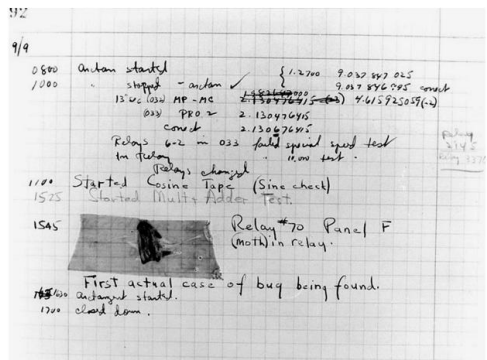 92
9/9
0800 antan started { 1.2700 9.037 847 025
1000 " stopped - antan ✓ 9.037 846 995 correct
13"uc (032) MP-MC 2.130476415 4.615925059(-2)
(033) PRO 2 2.130476415
correct 2.130676415
Relays 6-2 in 033 failed special speed test
in Relay " 10,000 test.
Relay
Relays changed
1100 Started Cosine Tape (Sine check)
1525 Started Mult+Adder Test.
1545 Relay #70 Panel F
(moth) in relay.
First actual case of bug being found.
1630 antangent started.
1700 closed down.